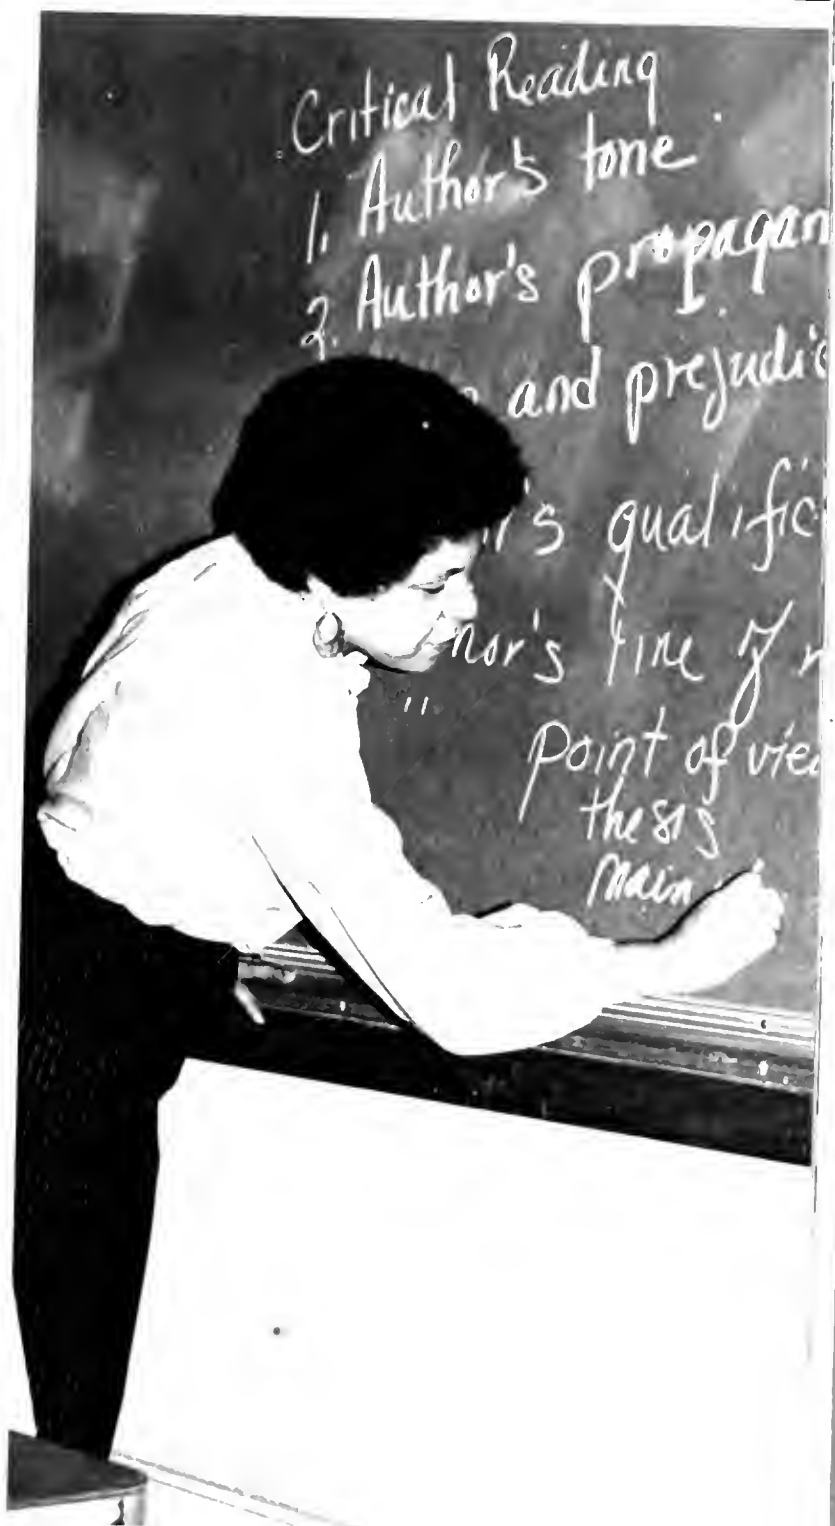 Critical Reading
1. Author's tone
2. Author's propagan
and prejudic
r's qualific
hor's line of r
" point of vie
thesis
main